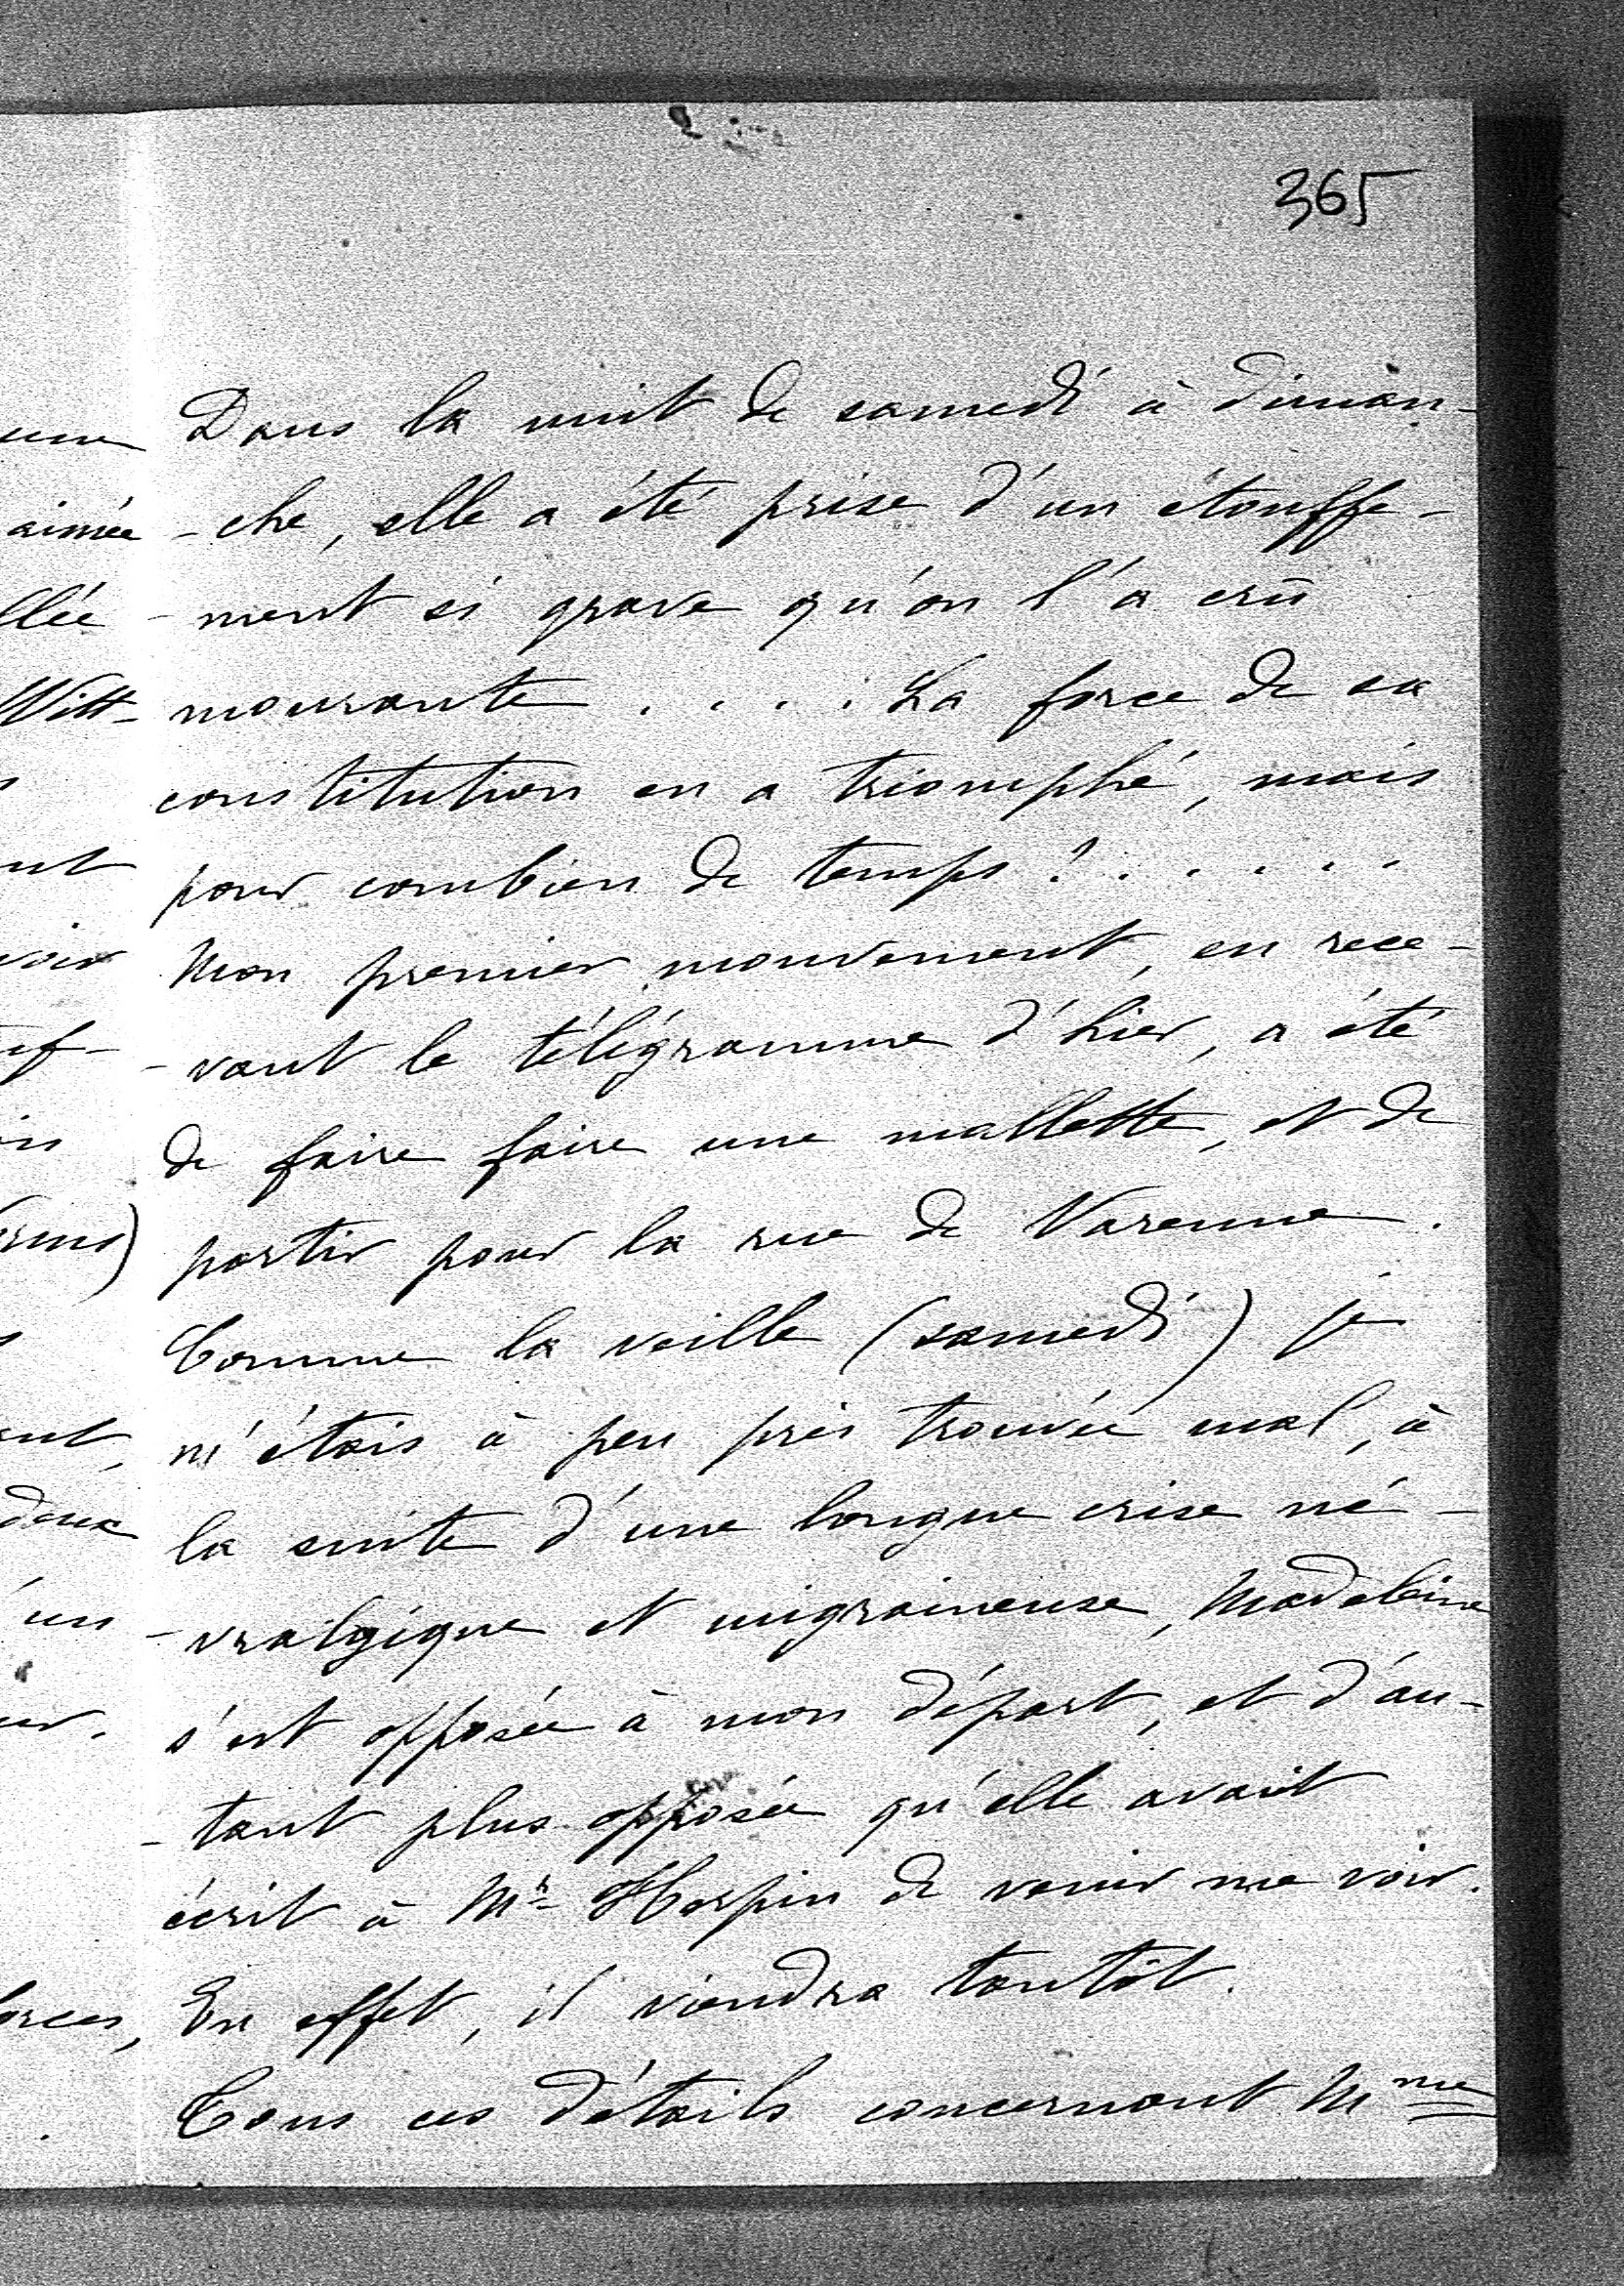 365
Dans la nuit de samedi à diman-
-che, elle a été prise d'un étouffe-
-ment si grave qu'on l'a crû
mourante . . . . La force de sa
constitution en a triomphé, mais
pour combien de temps ? . . . . .
Mon premier mouvement, en rece-
-vant le télégramme d'hier, a été
de faire faire une mallette, et de
partir pour la rue de Varenne.
Comme la veille (samedi) je
m'étais à peu près trouvée mal, à
la suite d'une longue crise né-
-vralgique et migraineuse, Madeleine
s'est opposée à mon départ, et d'au-
-tant plus opposée qu'elle avait
écrit à Mr de venir me voir.
En effet, il viendra tantôt.
Tous ces détails concernant Mme
une
aimée
llée
Witt-
nt
voir
in
ent,
deux
un
orces,